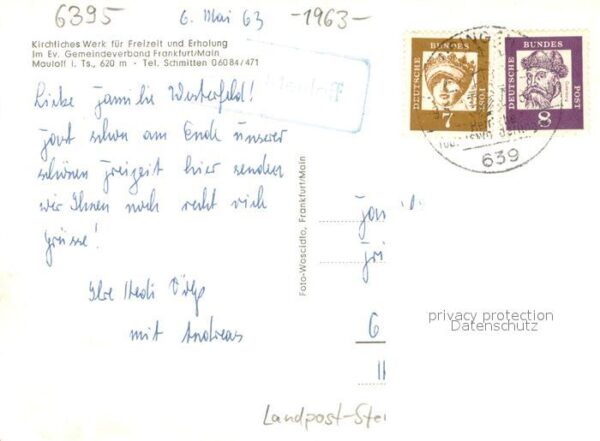 6395
6. Mai 63
-1963-
Kirchliches Werk für Freizeit und Erholung
im Ev. Gemeindeverband Frankfurt/Main
Mauloff i. Ts., 620 m · Tel. Schmitten 06084/471
Mauloff
Liebe Familie Westerfeld!
fast schon am Ende unserer
schönen Freizeit hier senden
wir Ihnen noch recht viele
Grüsse!
Ihre Hedi
mit Andreas
Foto-Wascidlo, Frankfurt/Main
DEUTSCHE BUNDES POST
7
DEUTSCHE BUNDES POST
8
639
Fam
6
privacy protection
Datenschutz
Landpost-Ste